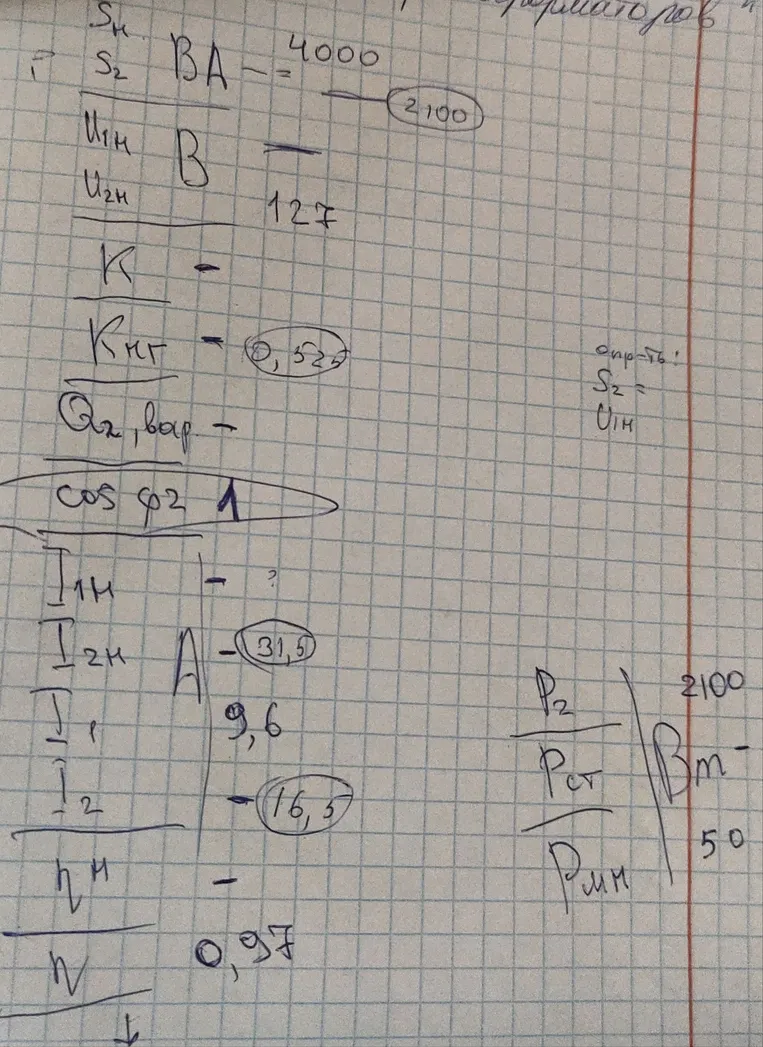 форматоров"
Sн
S₂ ВА - = 4000
— 2100
U₁н В —
U₂н 127
К -
Кнг - 0,525
Q₂, вар. -
cos φ2 1
I₁н - ?
I₂н А - 31,5
I₁ 9,6
I₂ - 16,5
ηн -
η 0,97
опр-ть:
S₂ =
U₁н
P₂ 2100
Pст Вт -
Pмн 50